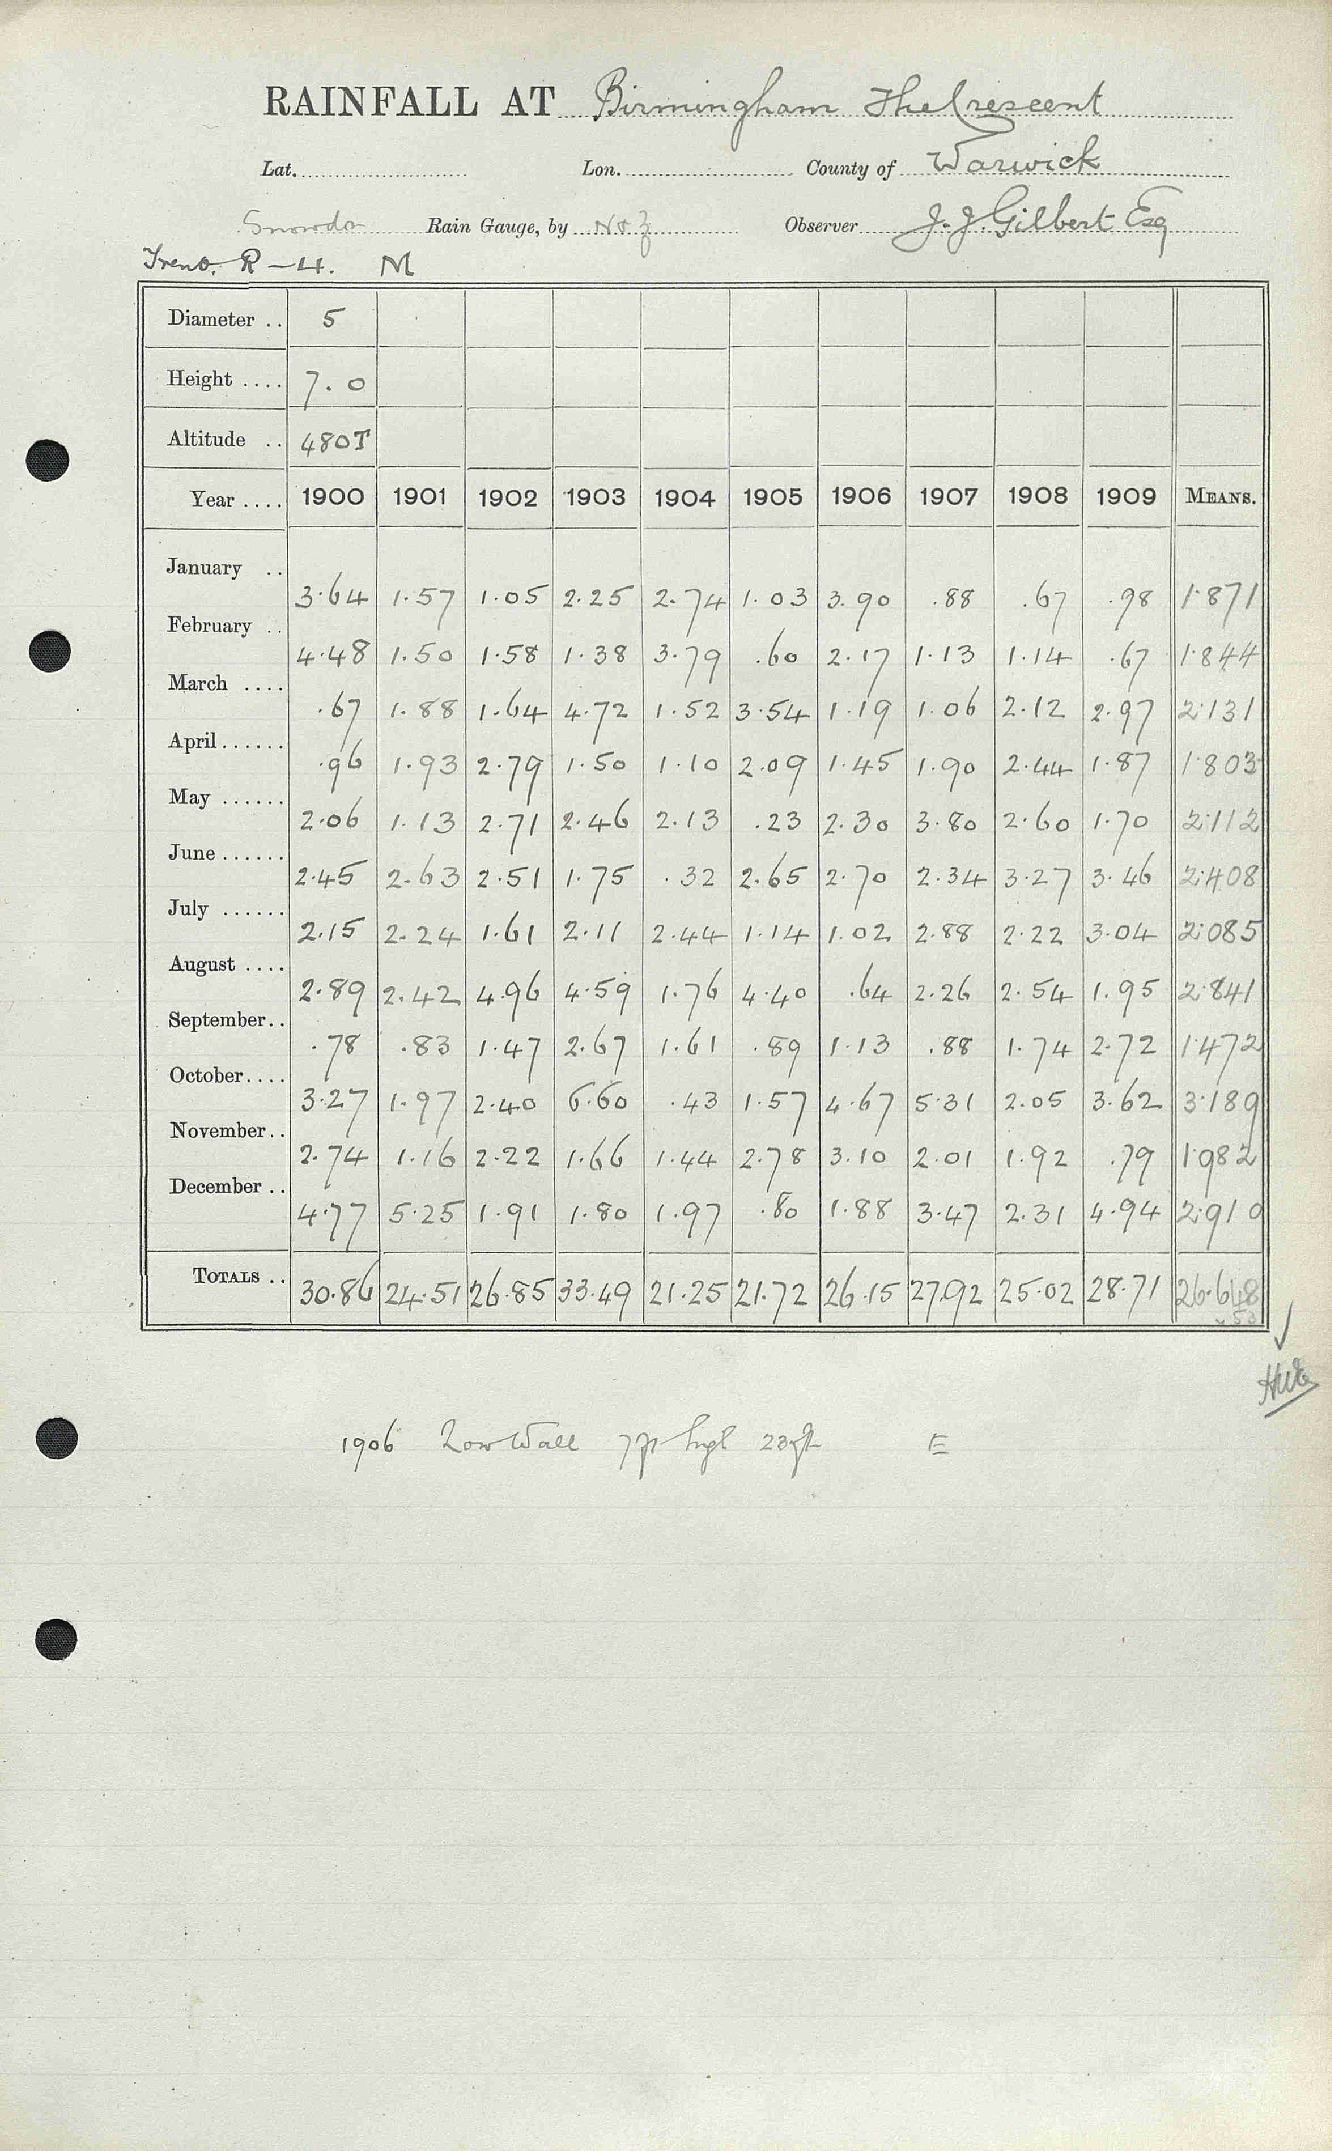 RAINFALL AT Birmingham The Crescent
Lat. Lon. County of Warwick
Snowdon Rain Gauge, by N & Z Observer J. J. Gilbert Esq
Trent. R-4. M
Diameter .. 5
Height .... 7.0
Altitude .. 480T
Year .... 1900 1901 1902 1903 1904 1905 1906 1907 1908 1909 MEANS.
January .. 3.64 1.57 1.05 2.25 2.74 1.03 3.90 .88 .67 .98 1.871
February .. 4.48 1.50 1.58 1.38 3.79 .60 2.17 1.13 1.14 .67 1.844
March .... .67 1.88 1.64 4.72 1.52 3.54 1.19 1.06 2.12 2.97 2.131
April ...... .96 1.93 2.79 1.50 1.10 2.09 1.45 1.90 2.44 1.87 1.803
May ...... 2.06 1.13 2.71 2.46 2.13 .23 2.30 3.80 2.60 1.70 2.112
June ...... 2.45 2.63 2.51 1.75 .32 2.65 2.70 2.34 3.27 3.46 2.408
July ...... 2.15 2.24 1.61 2.11 2.44 1.14 1.02 2.88 2.22 3.04 2.085
August .... 2.89 2.42 4.96 4.59 1.76 4.40 .64 2.26 2.54 1.95 2.841
September.. .78 .83 1.47 2.67 1.61 .89 1.13 .88 1.74 2.72 1.472
October.... 3.27 1.97 2.40 6.60 .43 1.57 4.67 5.31 2.05 3.62 3.189
November.. 2.74 1.16 2.22 1.66 1.44 2.78 3.10 2.01 1.92 .79 1.982
December .. 4.77 5.25 1.91 1.80 1.97 .80 1.88 3.47 2.31 4.94 2.910
TOTALS .. 30.86 24.51 26.85 33.49 21.25 21.72 26.15 27.92 25.02 28.71 26.648
1906 Low Wall 7ft high 23ft E